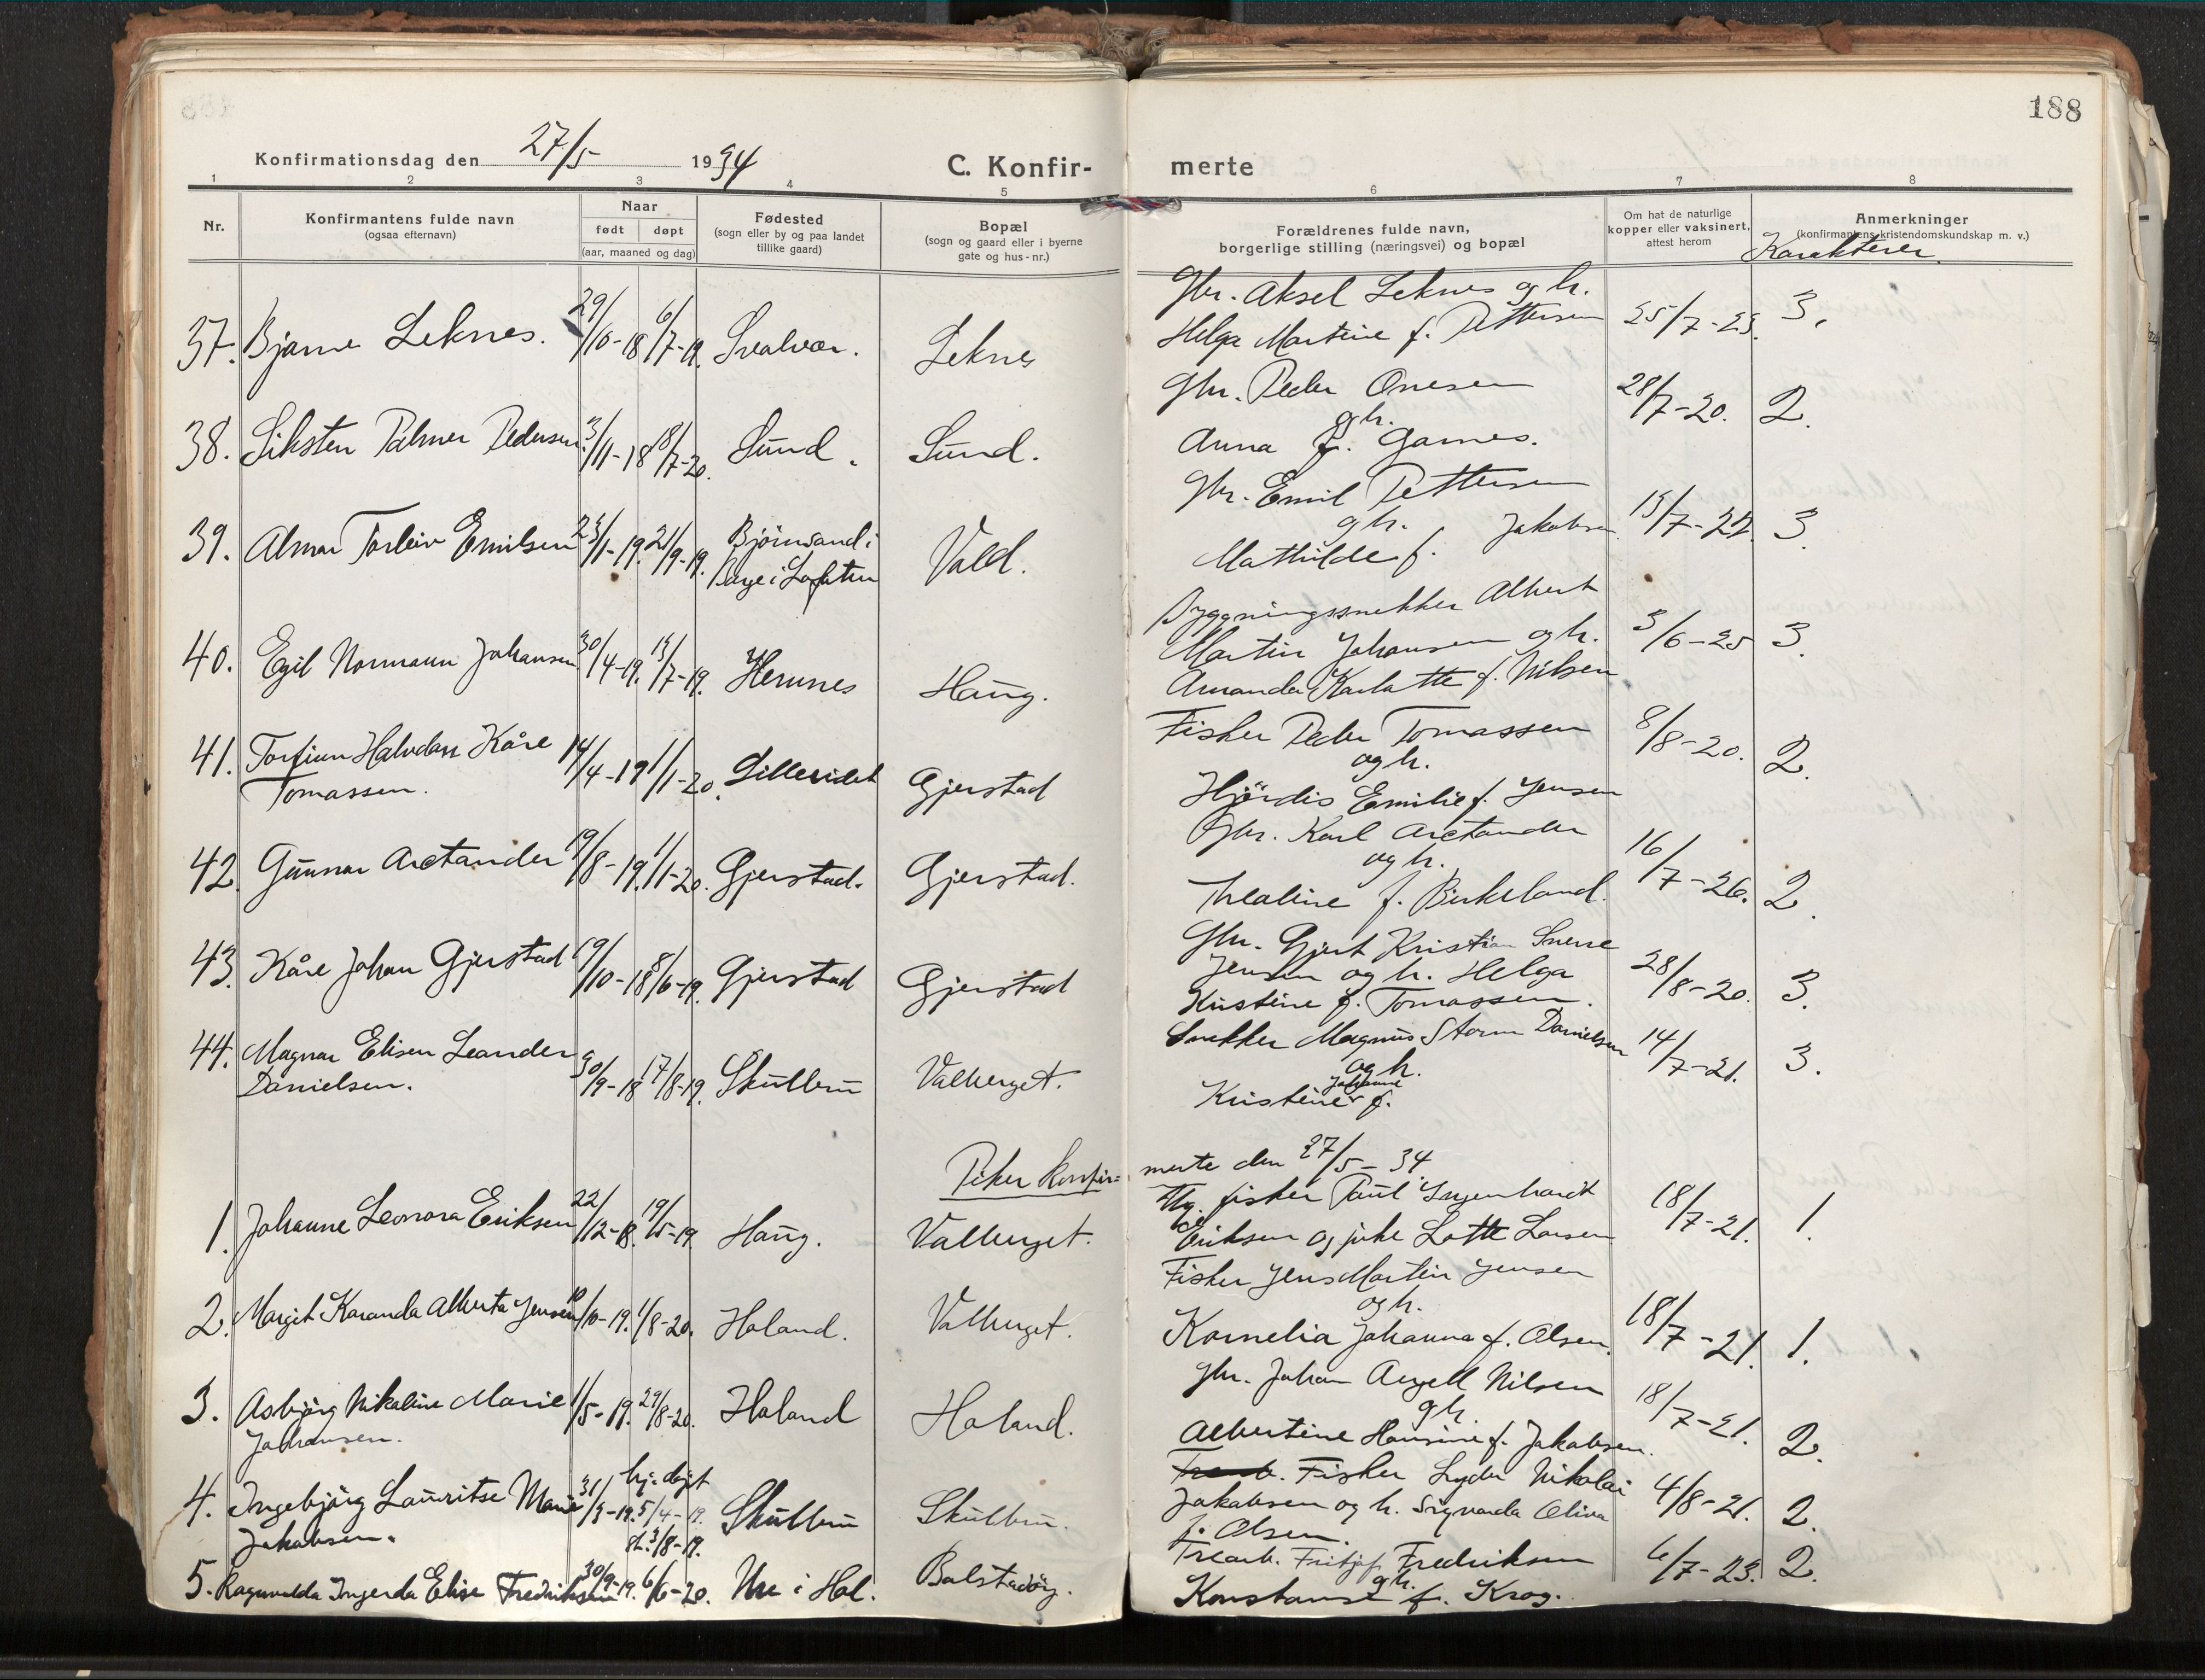 188
Konfirmationsdag den 27/5 1934
C. Konfir-
merte
1 2 3 4 5 6 7 8
Nr.
Konfirmantens fulde navn
(ogsaa efternavn)
Naar
født døpt
(aar, maaned og dag)
Fødested
(sogn eller by og paa landet
tillike gaard)
Bopæl
(sogn og gaard eller i byerne
gate og hus-nr.)
Forældrenes fulde navn,
borgerlige stilling (næringsvei) og bopæl
Om hat de naturlige
kopper eller vaksinert,
attest herom
Anmerkninger
(konfirmantens kristendomskundskap m. v.)
Karakterer.
37. Bjarne Leknes. 29/10-18 6/7-19. Svalvær. Leknes
Gbr. Aksel Leknes og h.
Helga Martine f. Pettersen 25/7-23. 3.
38. Siksten Palmer Pedersen 3/11-18 18/7-20. Sund. Sund.
Gbr. Peder Onesen
og h.
Anna f. Games. 28/7-20. 2.
39. Almar Torleiv Emilsen 23/1-19. 21/9-19. Bjørnsand i
Vald.
Gbr. Emil Pettersen
og h.
Mathilde f. Jakobsen 15/7-22. 3.
40. Egil Normann Johansen 30/4-19. 13/7-19. Hemnes Haug.
Byggningssnekker Albert
Martin Johansen og h.
Amanda Karlotte f. Nilsen 3/6-25 3.
41. Torfinn Halvdan Kåre
Tomassen. 14/4-19 1/1-20. Lilleeidet Gjerstad
Fisker Peder Tomassen
og h.
Hjördis Emilie f. Jensen 8/8-20. 2.
42. Gunnar Arctander 19/8-19. 1/1-20. Gjerstad. Gjerstad.
Gbr. Karl Arctander
og h.
Thealine f. Birkeland. 16/7-26. 2.
43. Kåre Johan Gjerstad 19/10-18 8/6-19. Gjerstad Gjerstad
Gbr. Gjert Kristian Sverre
Jensen og h. Helga
Kristine f. Tomassen. 28/8-20. 3.
44. Magnar Elisen Leander
Danielsen. 30/9-18 17/8-19. Skullbru Valberget.
Snekker Magnus Storm Danielsen
og h.
Johanne
Kristine f. 14/7-21. 3.
Piker konfir=
merte den 27/5-34
1. Johanne Leonora Eriksen 22/12-18. 19/5-19. Haug. Valberget.
Ug. fisker Paul Ingenhardt
Eriksen og pike Lotte Larsen 18/7-21. 1.
2. Margit Karanda Alberta Jensen 10/10-19. 1/8-20. Holand. Valberget.
Fisker Jens Martin Jensen
og h.
Kornelia Johanna f. Olsen. 18/7-21. 1.
3. Asbjørg Nikoline Marie
Johansen. 1/5-19. 29/8-20. Holand Holand.
Gbr. Johan Angell Nilsen
og h.
Albertine Hansine f. Jakobsen. 18/7-21. 2.
4. Ingebjørg Lauritse Marie
Jakobsen. 31/3-19. hj. døpt
5/4-19.
st. 3/8-19. Skullbru Skullbru.
Fisker Lyder Nikolai
Jakobsen og h. Signarda Oliva
f. Olsen. 4/8-21. 2.
5. Ragnvalda Ingerda Elise Fredriksen 30/9-19. 6/6-20. Ure i Hol. Balstadøy.
Trearb. Fritjof Fredriksen
og h.
Konstanse f. Krog. 6/7-23. 2.